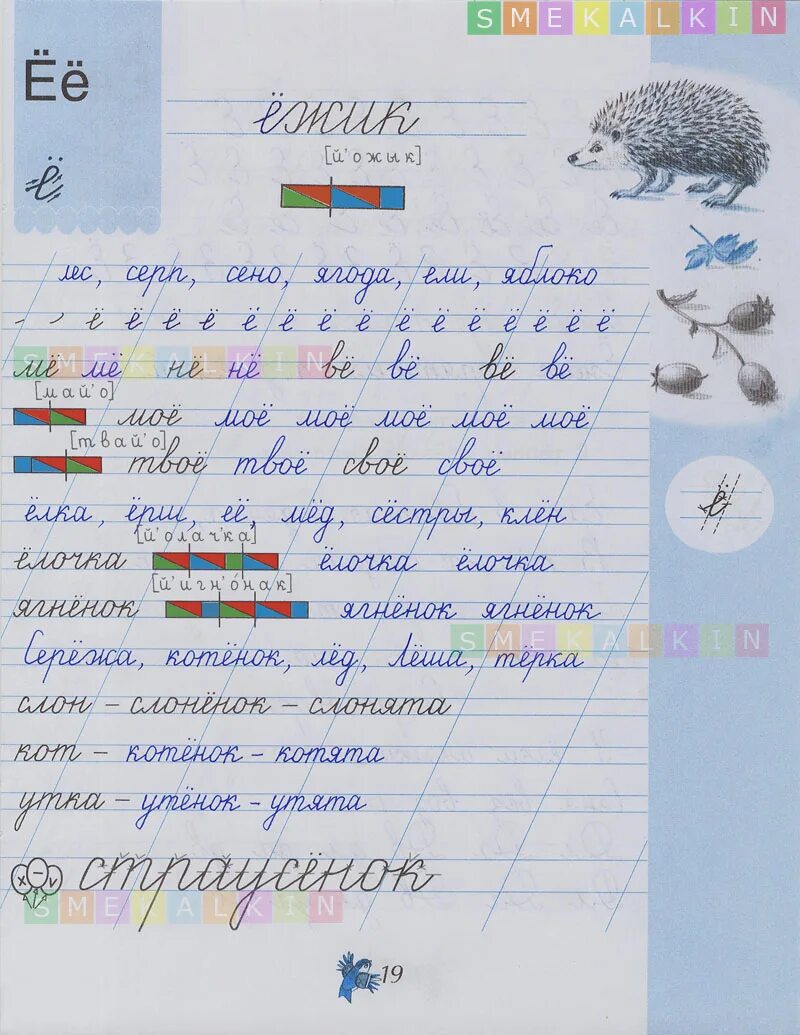 SMEKALKIN
Ёё
ёжик
[й'ожык]
ё
лес, серп, сено, ягода, ели, яблоко
ё ё ё ё ё ё ё ё ё ё ё ё ё ё ё
SMEKALKIN
мё мё нё нё вё вё вё вё
[май'о]
моё моё моё моё моё моё
[твай'о]
твоё твоё своё своё
ё
ёлка, ёрш, её, мёд, сёстры, клён
[й'олач'ка]
ёлочка ёлочка ёлочка
[й'игн'о́нак]
ягнёнок ягнёнок ягнёнок
SMEKALKIN
Серёжа, котёнок, лёд, Лёша, тёрка
слон – слонёнок – слонята
кот – котёнок – котята
утка – утёнок – утята
х – v
страусёнок
SMEKALKIN
19